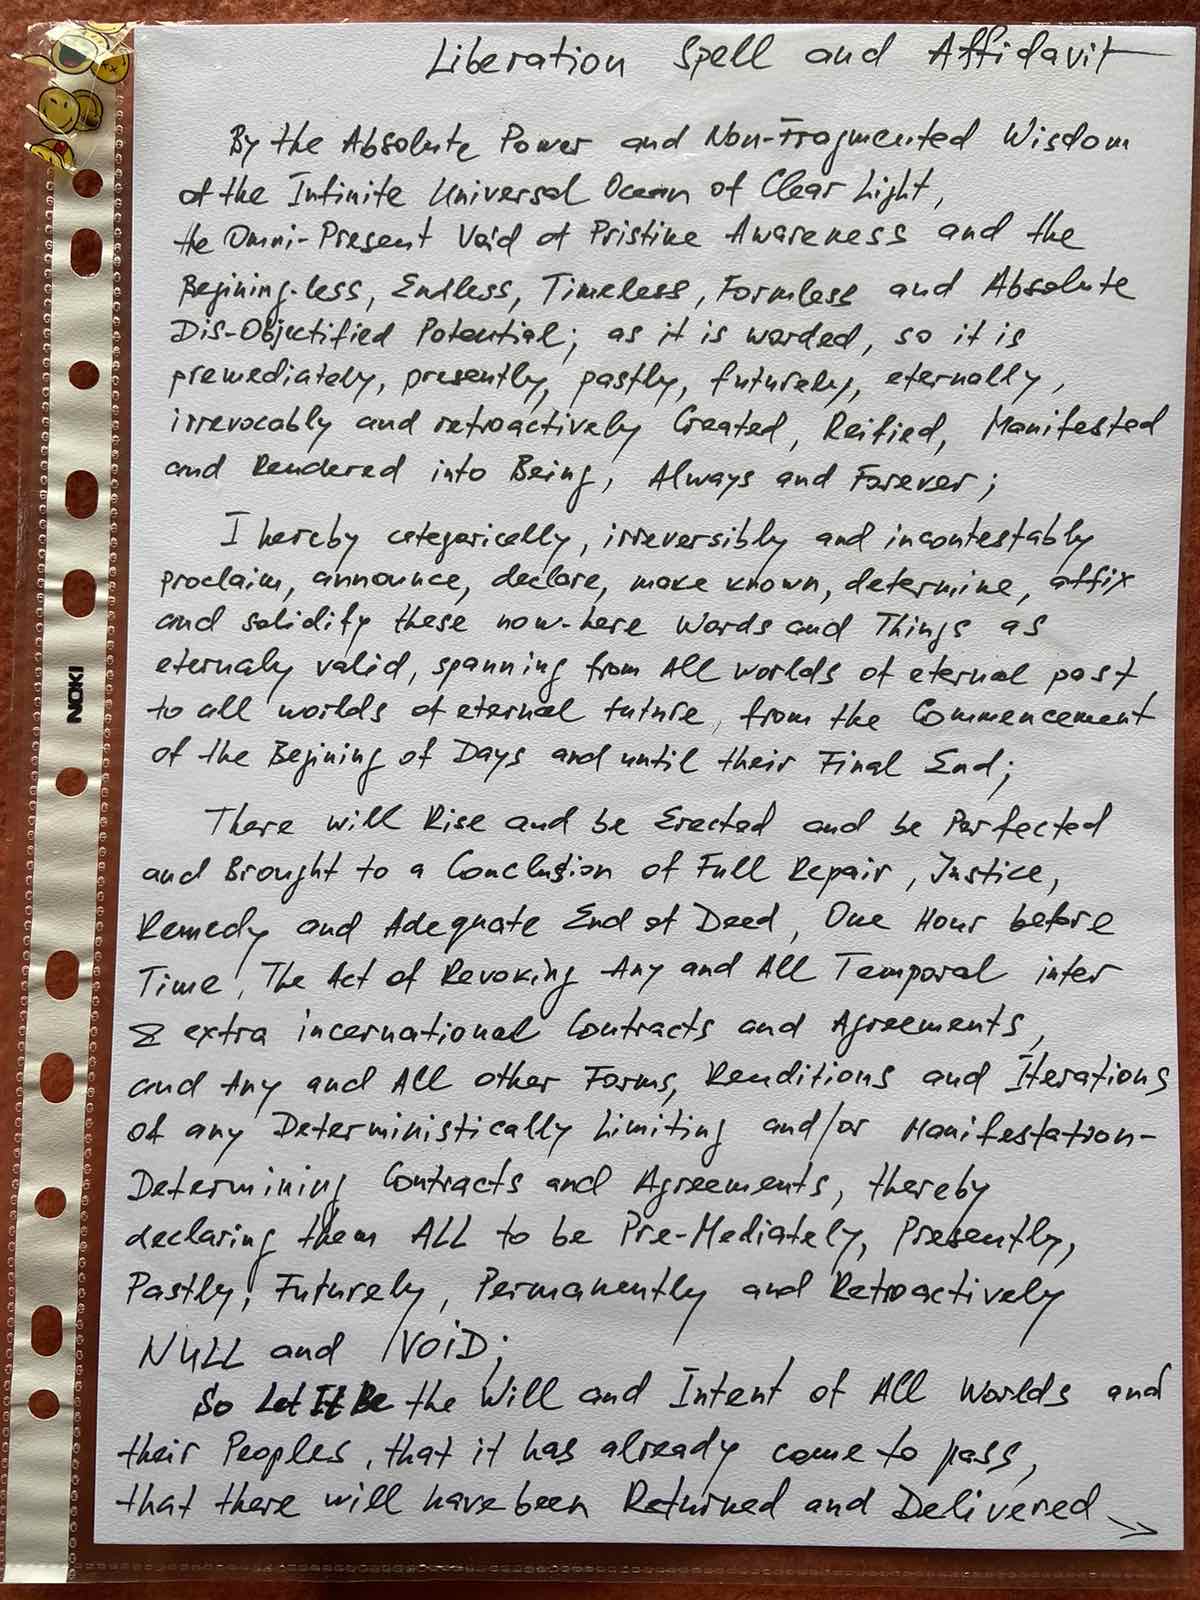 Liberation Spell and Affidavit
By the Absolute Power and Non-Fragmented Wisdom
of the Infinite Universal Ocean of Clear Light,
the Omni-Present Void of Pristine Awareness and the
Begining-less, Endless, Timeless, Formless and Absolute
Dis-Objectified Potential; as it is worded, so it is
premediately, presently, pastly, futurely, eternally,
irrevocably and retroactively Created, Reified, Manifested
and Rendered into Being, Always and Forever;
I hereby categorically, irreversibly and incontestably
proclaim, announce, declare, make known, determine, affix
and solidify these now-here Words and Things as
eternaly valid, spanning from All worlds of eternal past
to all worlds of eternal future, from the Commencement
of the Begining of Days and until their Final End;
There will Rise and be Erected and be Perfected
and Brought to a Conclusion of Full Repair, Justice,
Remedy and Adequate End of Deed, One Hour before
Time, The Act of Revoking Any and All Temporal inter
& extra incernational Contracts and Agreements,
and Any and All other Forms, Renditions and Iterations
of any Deterministically Limiting and/or Manifestation-
Determining Contracts and Agreements, thereby
declaring them ALL to be Pre-Mediately, Presently,
Pastly, Futurely, Permanently and Retroactively
NULL and VOID;
So Let It Be the Will and Intent of All Worlds and
their Peoples, that it has already come to pass,
that there will have been Returned and Delivered
NOKI